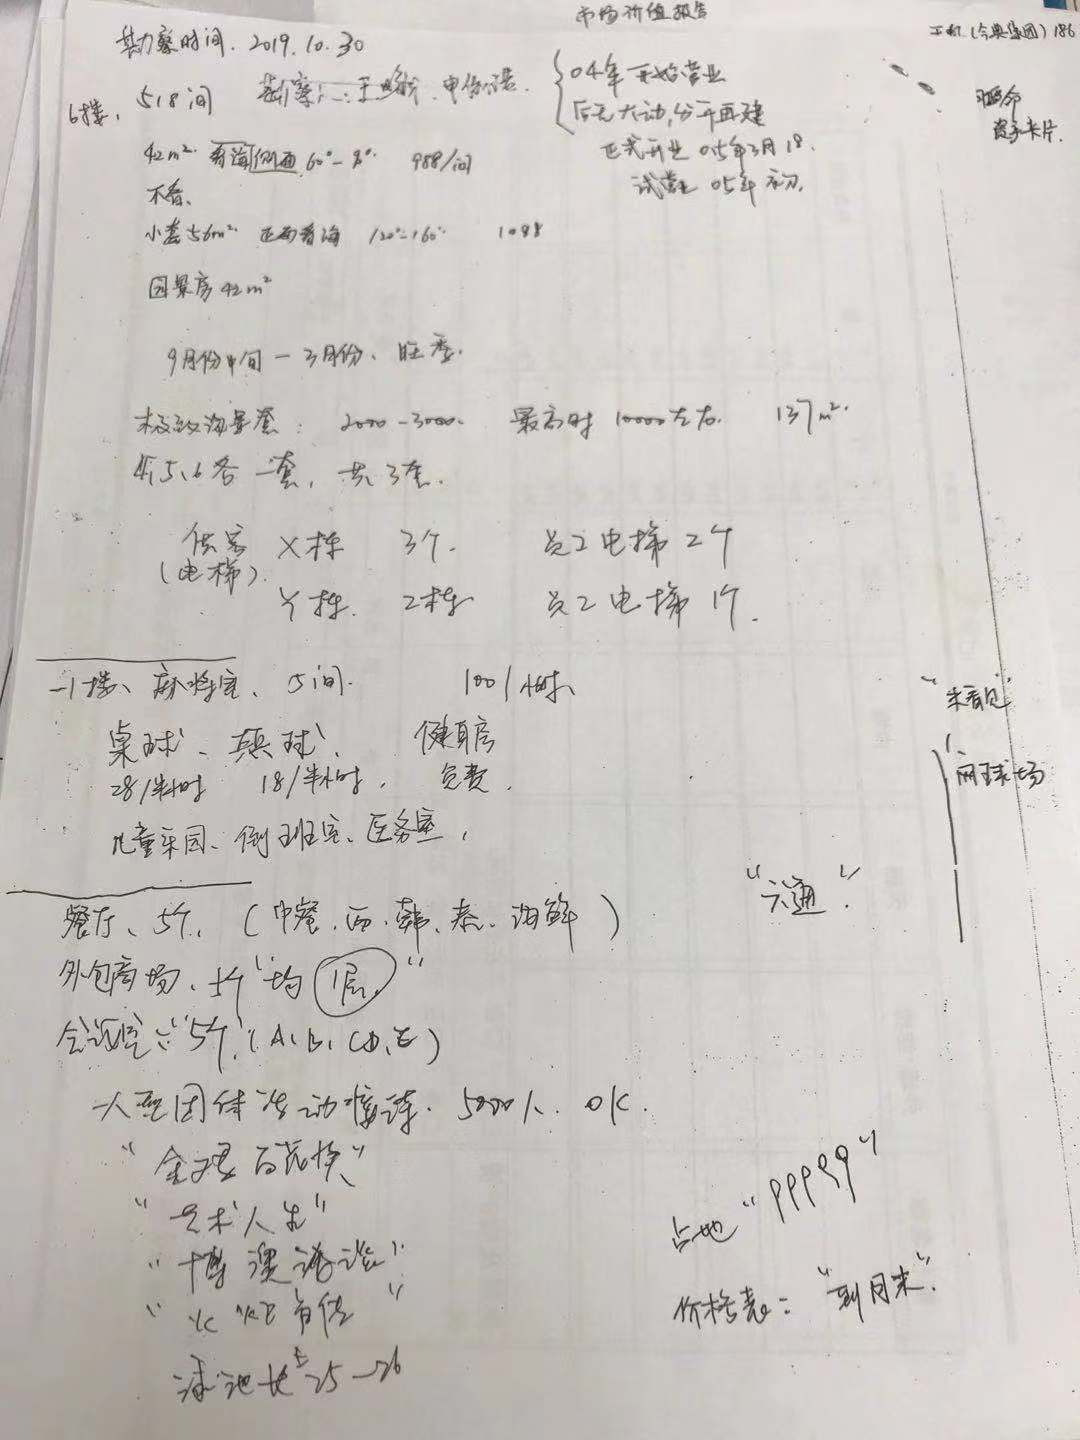 市场价值报告
(今典集团) 186
勘察时间. 2019.10.30
6楼, 518间 勘察人: 王
04年开始营业
后无大动,分开再建
正式开业 05年3月18.
试营业 05年初.
寿命
资产卡片
42m² 看海侧面 60°- 988/间
不看、
小套56m² 正面看海 120°-160° 1088
园景房42m²
9月份中旬一3月份、旺季.
极致海景套: 2000-3000. 最高时10000左右. 137m²
4、5、6各一套, 共3套.
供客(电梯) X栋 3个. 员工电梯2个
Y栋. 2栋 员工电梯1个.
-1楼、麻将室、5间. 100/小时、
桌球、乒乓球、健身房
28/半小时 18/半小时, 免费.
儿童乐园、倒班室、医务室,
"未看见"
网球场
"六通."
餐厅、5个, (中餐、西、韩、泰、海鲜)
外包商场、5个"均1层."
会议室: "5个"(A、B、C、D、E)
大型团体活动接待. 5000人. OK.
"金鸡百花奖"
"艺术人生"
"博
"火炬传
泳池长 25-26
占地"99999"
价格表: "到月末".